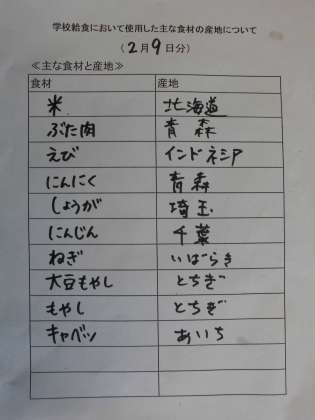 学校給食において使用した主な食材の産地について
(2月9日分)
≪主な食材と産地≫
食材 産地
米 北海道
ぶた肉 青森
えび インドネシア
にんにく 青森
しょうが 埼玉
にんじん 千葉
ねぎ いばらき
大豆もやし とちぎ
もやし とちぎ
キャベツ あいち